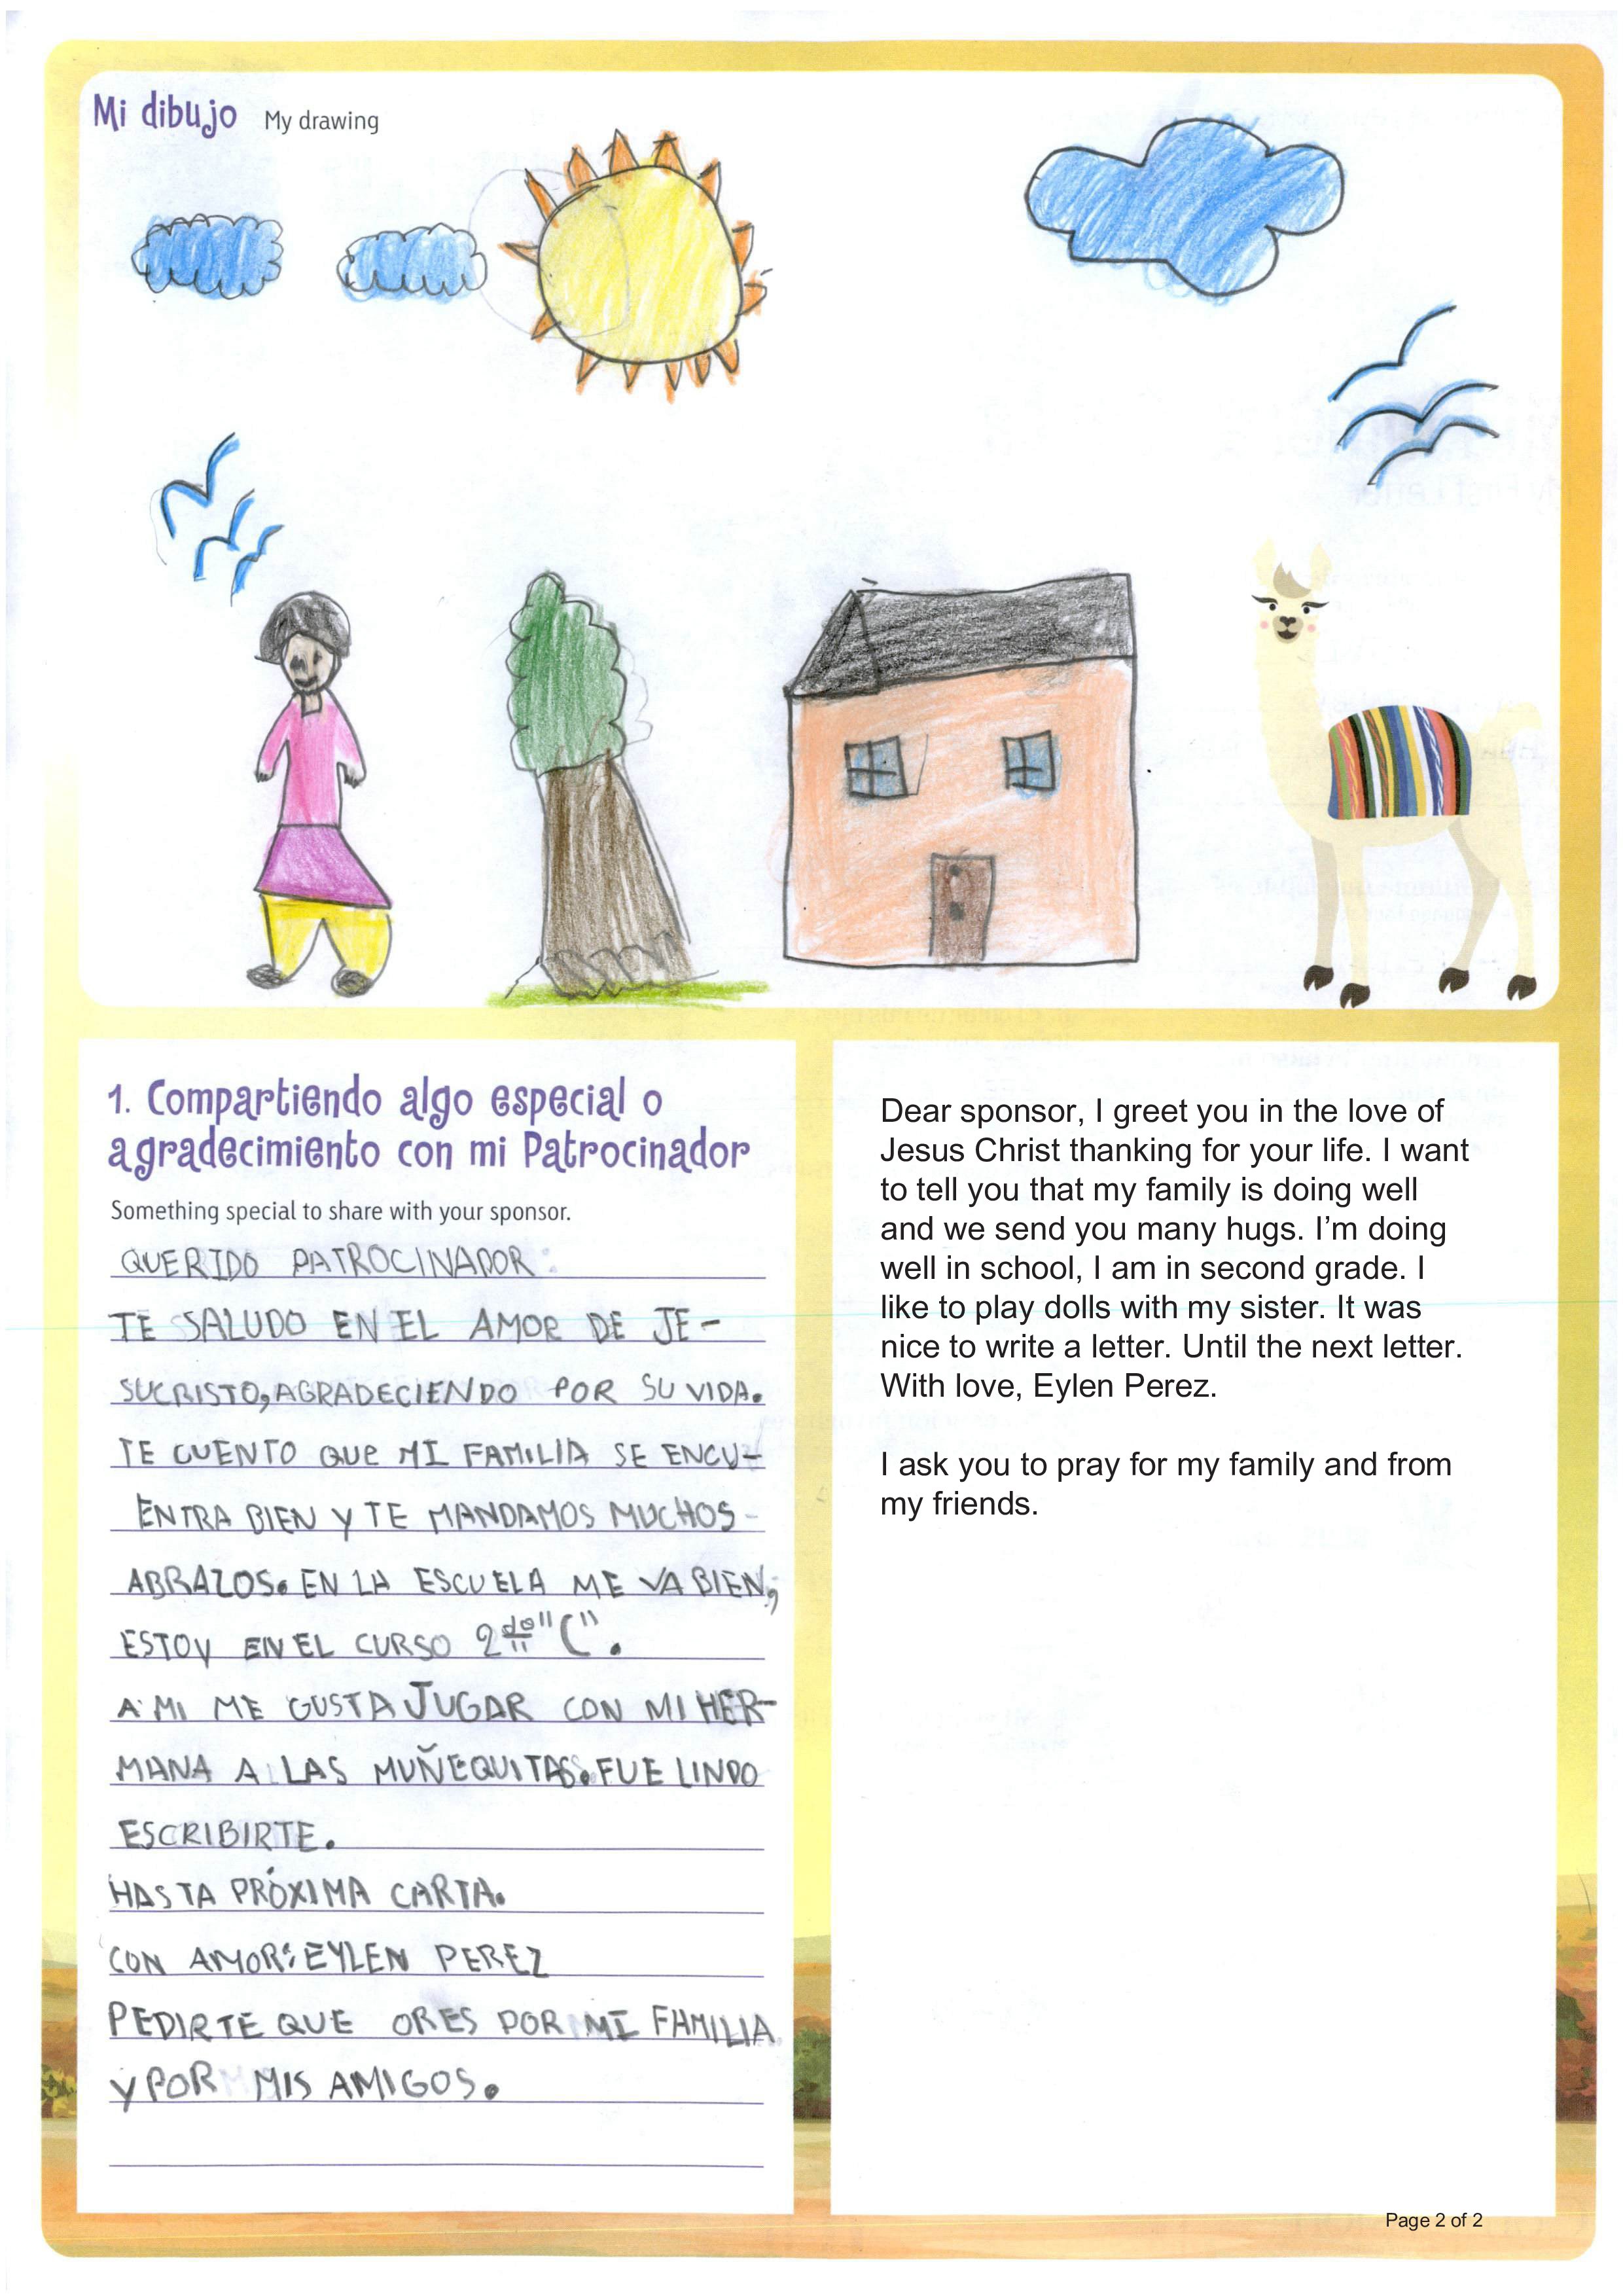 Mi dibujo My drawing
1. Compartiendo algo especial o
agradecimiento con mi Patrocinador
Something special to share with your sponsor.
QUERIDO PATROCINADOR:
TE SALUDO EN EL AMOR DE JE-
SUCRISTO, AGRADECIENDO POR SU VIDA.
TE CUENTO QUE MI FAMILIA SE ENCU-
ENTRA BIEN Y TE MANDAMOS MUCHOS-
ABRAZOS. EN LA ESCUELA ME VA BIEN,
ESTOY EN EL CURSO 2do "C".
A MI ME GUSTA JUGAR CON MI HER-
MANA A LAS MUÑEQUITAS. FUE LINDO
ESCRIBIRTE.
HASTA PRÓXIMA CARTA.
CON AMOR: EYLEN PEREZ
PEDIRTE QUE ORES POR MI FAMILIA
Y POR MIS AMIGOS.
Dear sponsor, I greet you in the love of
Jesus Christ thanking for your life. I want
to tell you that my family is doing well
and we send you many hugs. I'm doing
well in school, I am in second grade. I
like to play dolls with my sister. It was
nice to write a letter. Until the next letter.
With love, Eylen Perez.
I ask you to pray for my family and from
my friends.
Page 2 of 2